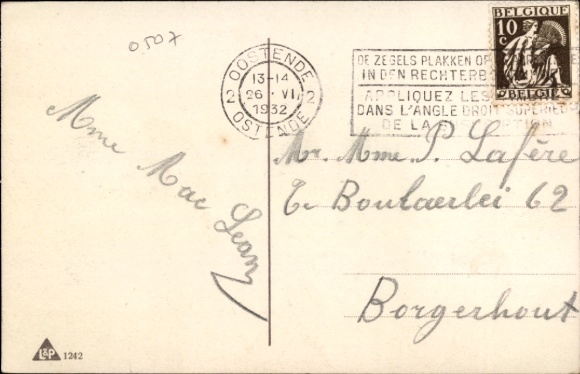 0507
BELGIQUE
10 c
BELGIE
OOSTENDE
13-14
26 · VI
1932
2 2
OSTENDE
DE ZEGELS PLAKKEN OP
IN DEN RECHTERB
APPLIQUEZ LES
DANS L'ANGLE DROIT SUPERIEU
DE LA TION
Mme Mac Lean
Mr. Mme. P. Lafère
T. Boutaerlei 62
Borgerhout
L&P 1242